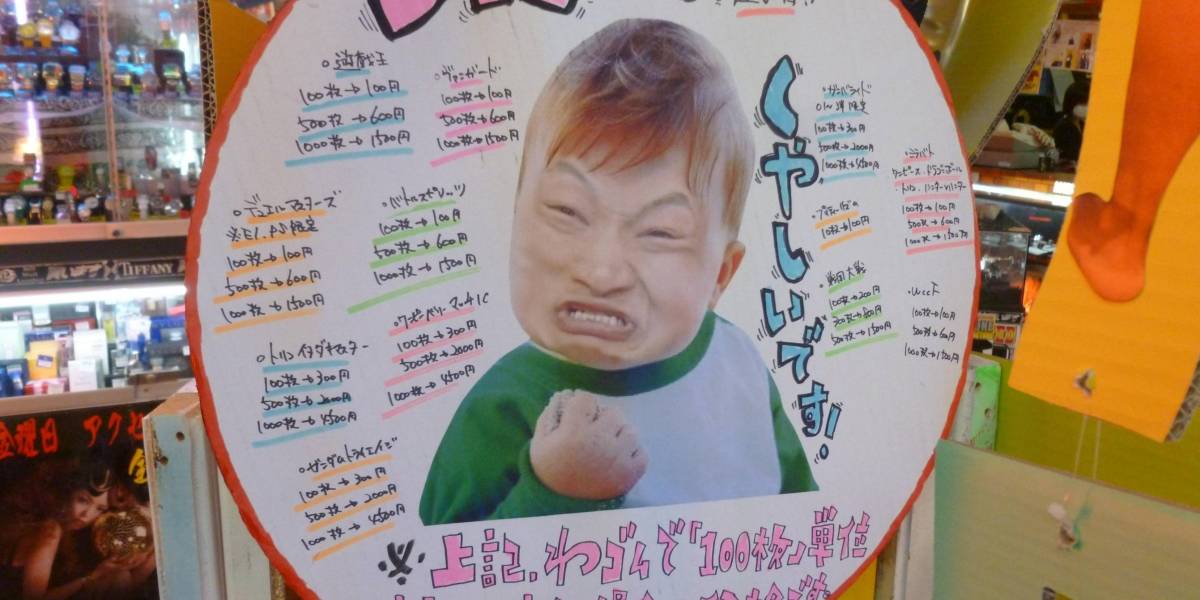 ○遊戯王
100枚→100円
500枚→600円
1000枚→1500円
○ヴァンガード
100枚→100円
500枚→600円
1000枚→1500円
○デュエルマスターズ
100枚→100円
500枚→600円
1000枚→1500円
○バトルスピリッツ
100枚→100円
500枚→600円
1000枚→1500円
100枚→300円
500枚→2000円
1000枚→4500円
100枚→300円
500枚→2000円
1000枚→4500円
100枚→300円
500枚→2000円
1000枚→4500円
くやしいです!
○ガンバライド
100枚→300円
500枚→2000円
1000枚→4500円
10枚→100円
○戦国大戦
100枚→200円
300枚→800円
500枚→1500円
○ミラバト
ワンピース・ドラゴンボール
トリコ・ハンター×ハンター
100枚→100円
500枚→600円
1000枚→1500円
○WCCF
100枚→100円
500枚→600円
1000枚→1500円
※上記、わゴムで「100枚」単位
TIFFANY
金曜日 アクセ